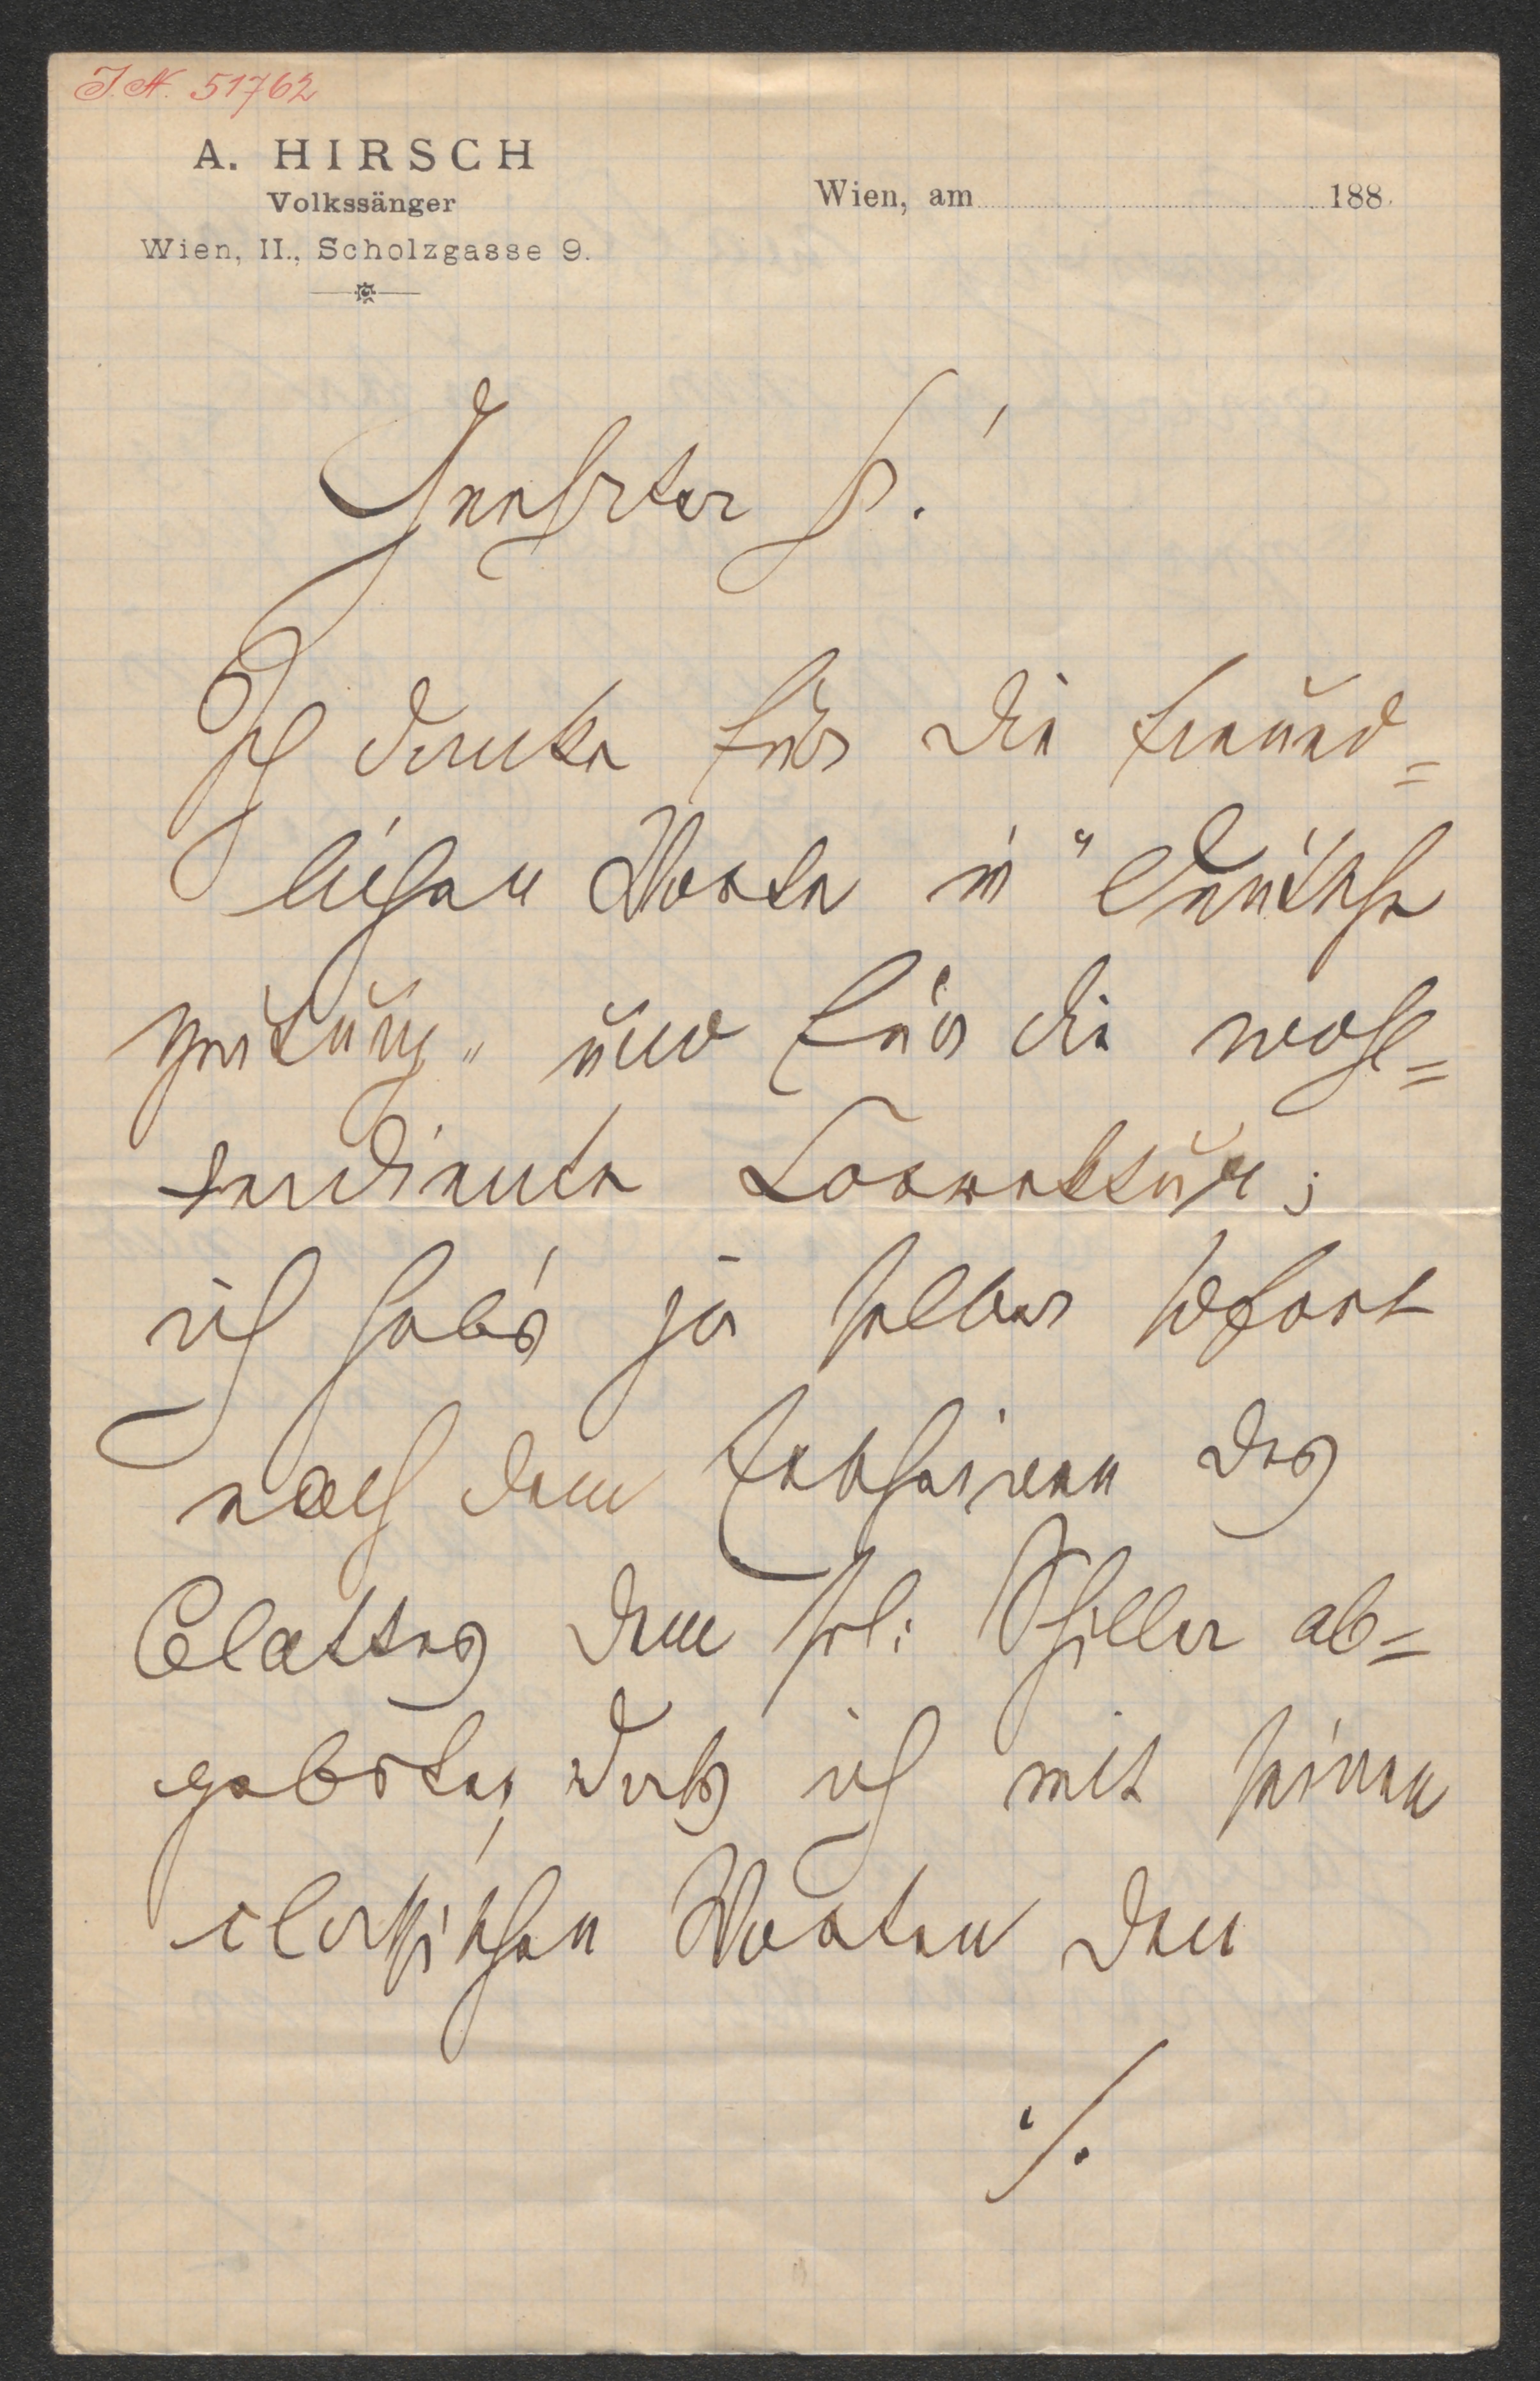 J.N. 51762
A. HIRSCH
Volkssänger
Wien, II., Scholzgasse 9.
Wien, am 188
Geehrter H!
Ich danke für die freund=
lichen Worte in "Deutsche
Zeitung" und für die wohl=
verdiente Correktur;
ich hab's ja selber sofort
nach dem Erscheinen des
Blattes dem sel: Schiller ab=
gebeten, daß ich mit seinen
classischen Worten den
./.